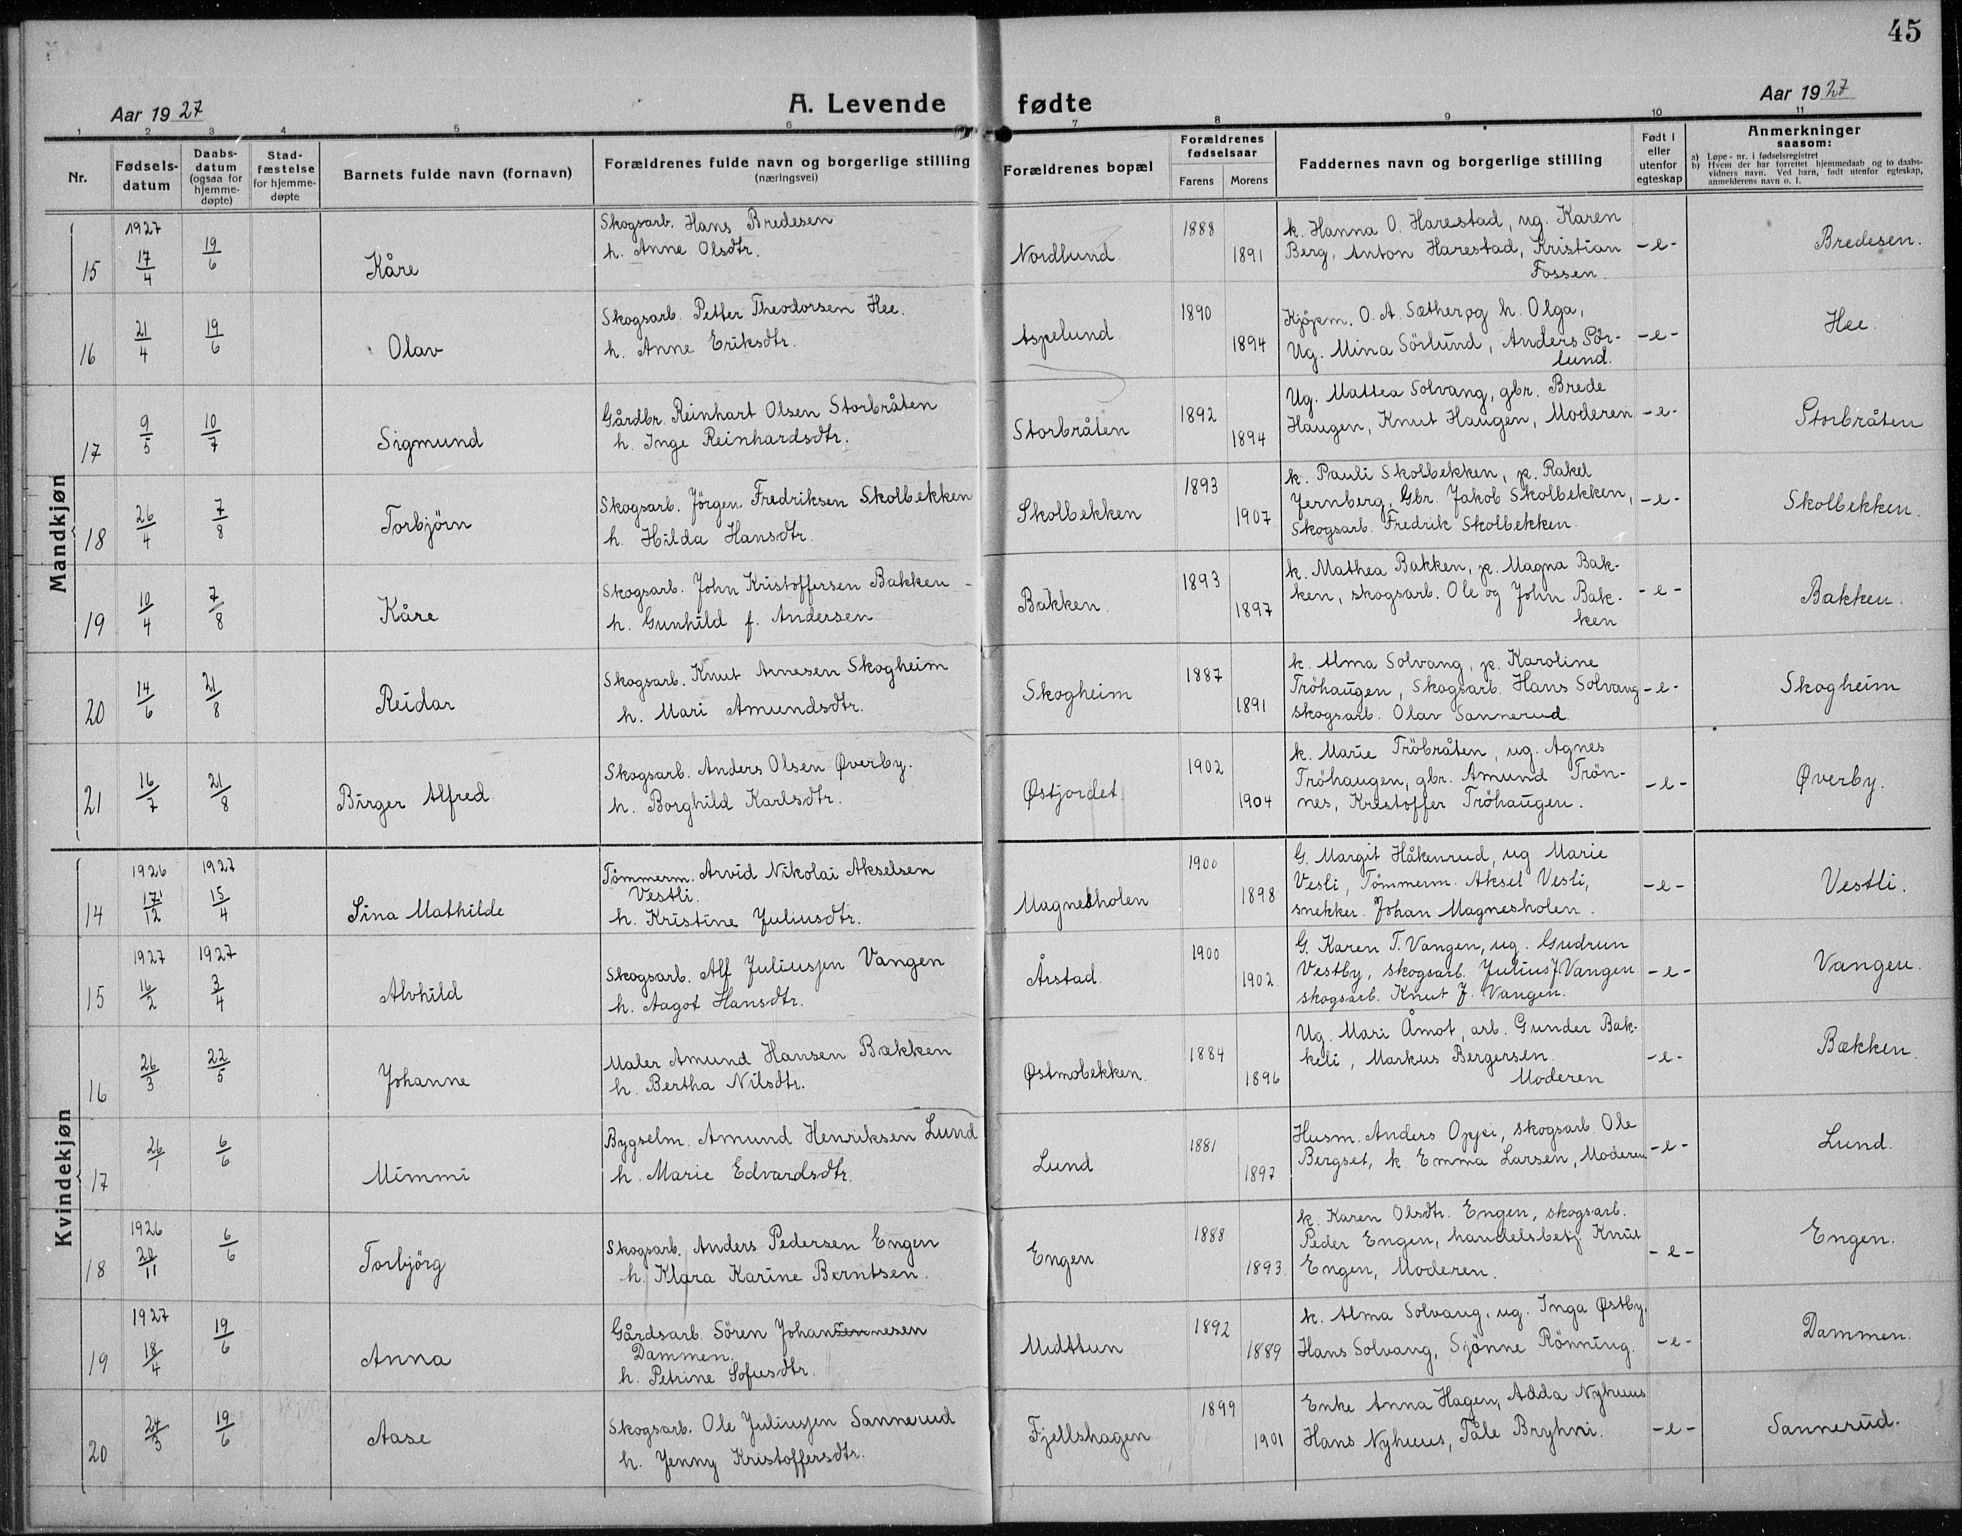 45
Aar 1927
A. Levende fødte
Aar 1927
1 2 3 4 5 6 7 8 9 10 11
Nr.
Fødsels-
datum
Daabs-
datum
(ogsaa for
hjemme-
døpte)
Stad-
fæstelse
for hjemme-
døpte
Barnets fulde navn (fornavn)
Forældrenes fulde navn og borgerlige stilling
(næringsvei)
Forældrenes bopæl
Forældrenes
fødselsaar
Farens Morens
Faddernes navn og borgerlige stilling
Født i
eller
utenfor
egteskap
Anmerkninger
saasom:
a) Løpe-nr. i fødselsregistret
b) Hvem der har forrettet hjemmedaab og to daabs-
vidners navn. Ved barn, født utenfor egteskap,
anmelderens navn o. l.
Mandkjøn
15 1927 17/4 19/6 Kåre
Skogsarb. Hans Bredesen
h. Anne Olsdtr.
Nordlund 1888 1891
k. Hanna O. Harestad, ug. Karen
Berg, Anton Harestad, Kristian
Fossen.
-e- Bredesen.
16 21/4 19/6 Olav
Skogsarb. Petter Theodorsen Hee.
h. Anne Eriksdtr.
Aspelund 1890 1894
Kjøpm. O. A. Sæther og h. Olga,
Ug. Mina Sörlund, Anders Sör-
lund.
-e- Hee.
17 9/5 10/7 Sigmund
Gårdbr. Reinhart Olsen Storbråten
h. Inge Reinhardsdtr.
Storbråten 1892 1894
Ug. Mattea Solvang, gbr. Brede
Haugen, Knut Haugen, Moderen
-e- Storbråten
18 26/4 7/8 Torbjörn
Skogsarb. Jörgen Fredriksen Skolbekken
h. Hilda Hansdtr.
Skolbekken 1893 1907
k. Pauli Skolbekken, p. Rakel
Jernberg, Gbr. Jakob Skolbekken,
Skogsarb. Fredrik Skolbekken.
-e- Skolbekken.
19 10/4 7/8 Kåre
Skogsarb. John Kristoffersen Bakken
h. Gunhild f. Andersen
Bakken. 1893 1897
k. Mathea Bakken, p. Magna Bak-
ken, skogsarb. Ole og John Bak-
ken
-e- Bakken.
20 14/6 21/8 Reidar
Skogsarb. Knut Arnesen Skogheim
h. Mari Amundsdtr.
Skogheim 1887 1891
k. Alma Solvang, p. Karoline
Tröhaugen, Skogsarb. Hans Solvang
skogsarb. Olav Sannerud.
-e- Skogheim
21 16/7 21/8 Birger Alfred
Skogsarb. Anders Olsen Øverby.
h. Borghild Karlsdtr.
Østjordet. 1902 1904
k. Marie Tröbråten, ug. Agnes
Tröhaugen, gbr. Amund Trön-
nes, Kristoffer Tröhaugen.
-e- Øverby.
Kvindekjøn
14 1926 17/12 1927 15/4 Sina Mathilde
Tömmerm. Arvid Nikolai Akselsen
Vestli.
h. Kristine Juliusdtr.
Magnesholen 1900 1898
G. Margit Håkenrud, ug Marie
Vesli, Tömmerm. Aksel Vesli,
snekker. Johan Magnesholen.
-e- Vestli.
15 1927 16/2 1927 3/4 Alvhild
Skogsarb. Alf Juliussen Vangen
h. Aagot Hansdtr.
Årstad. 1900 1902
G. Karen T. Vangen, ug. Gudrun
Vestby, skogsarb. Julius J Vangen
skogsarb. Knut J. Vangen.
-e- Vangen.
16 26/3 22/5 Johanne
Maler Amund Hansen Bækken
h. Bertha Nilsdtr.
Østmobekken. 1884 1896
Ug. Mari Åmot, arb. Gunder Bak-
keli, Markus Bergersen.
Moderen
-e- Bækken.
17 26/1 6/6 Mimmi
Bygselm. Amund Henriksen Lund
h. Marie Edvardsdtr.
Lund 1881 1897
Husm. Anders Oppi, skogsarb. Ole
Bergset, k Emma Larsen, Moderen
-e- Lund.
18 1926 20/11 6/6 Torbjörg
Skogsarb. Anders Pedersen Engen
h. Klara Karine Berntsen.
Engen 1888 1893
k. Karen Olsdtr. Engen, skogsarb.
Peder Engen, handelsbetj Knut
Engen, Moderen.
-e- Engen.
19 1927 18/4 19/6 Anna
Gårdsarb. Sören Johannesen
Dammen.
h. Petrine Sofusdtr.
Midttun 1892 1889
k. Alma Solvang, ug. Inga Østby,
Hans Solvang, Sjönne Rönning.
-e- Dammen.
20 24/3 19/6 Aase
Skogsarb. Ole Juliussen Sannerud
h. Jenny Kristoffersdtr.
Fjellshagen 1899 1901
Enke Anna Hagen, Adda Nyhuus
Hans Nyhuus, Påle Bryhni.
-e- Sannerud.